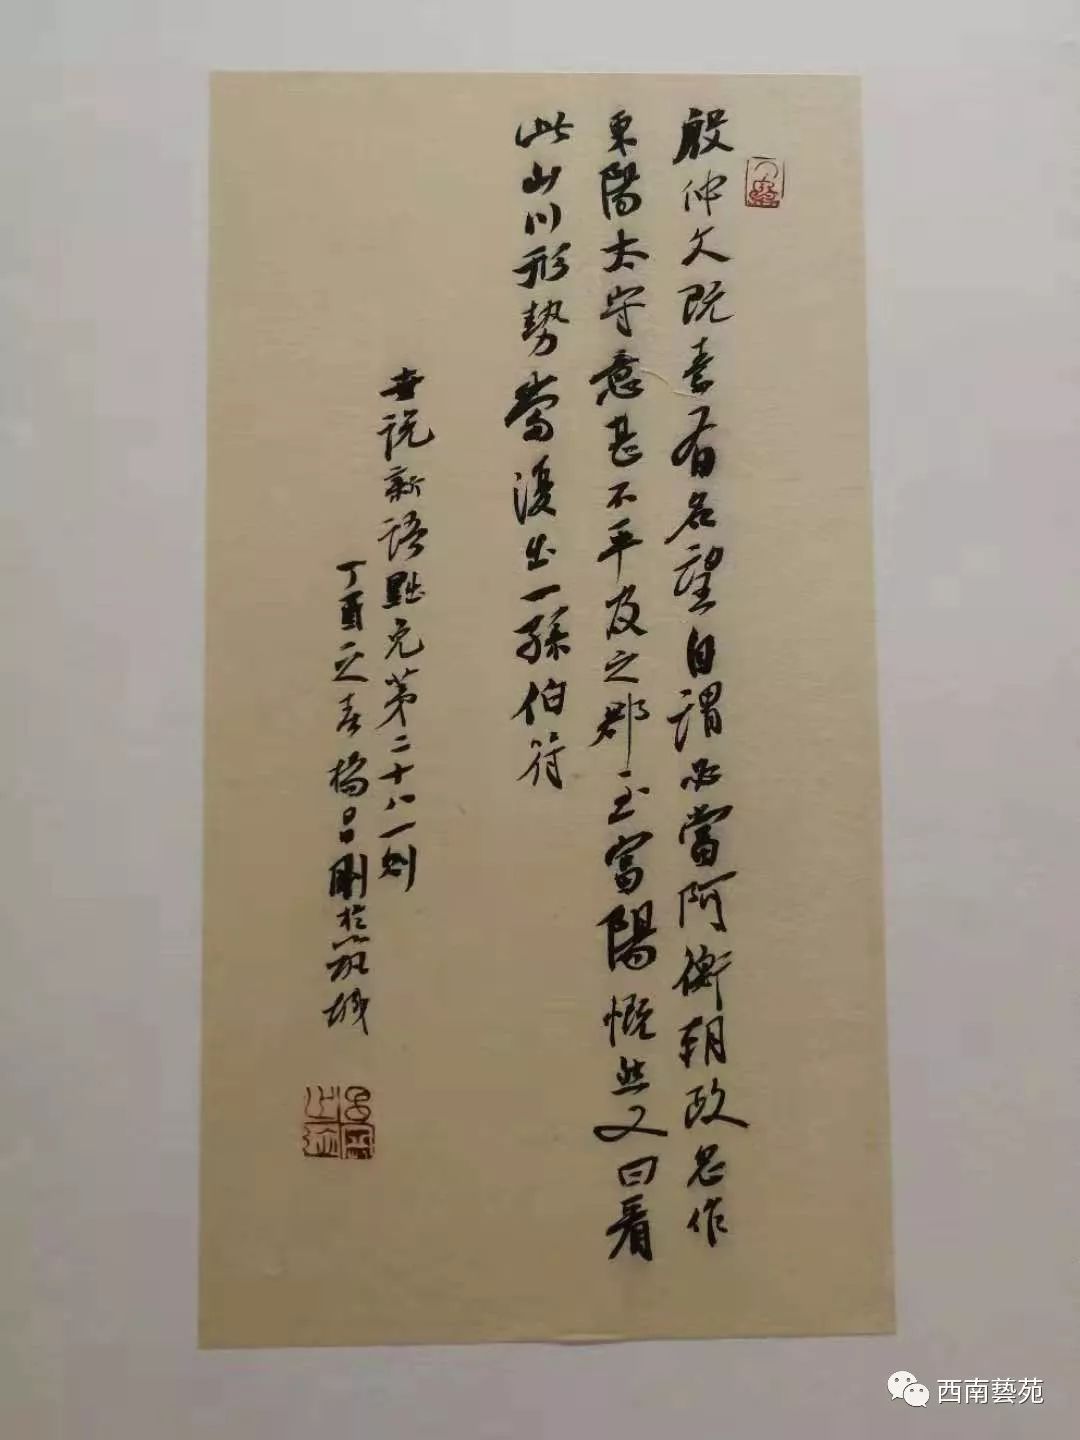 殷仲文既素有名望自謂必當阿衡朝政忽作
東陽太守意甚不平及之郡至富陽慨然又曰看
此山川形勢當復出一孫伯符
世說新語黜免第二十八一則
丁酉之春楊昌剛於筑城
西南藝苑